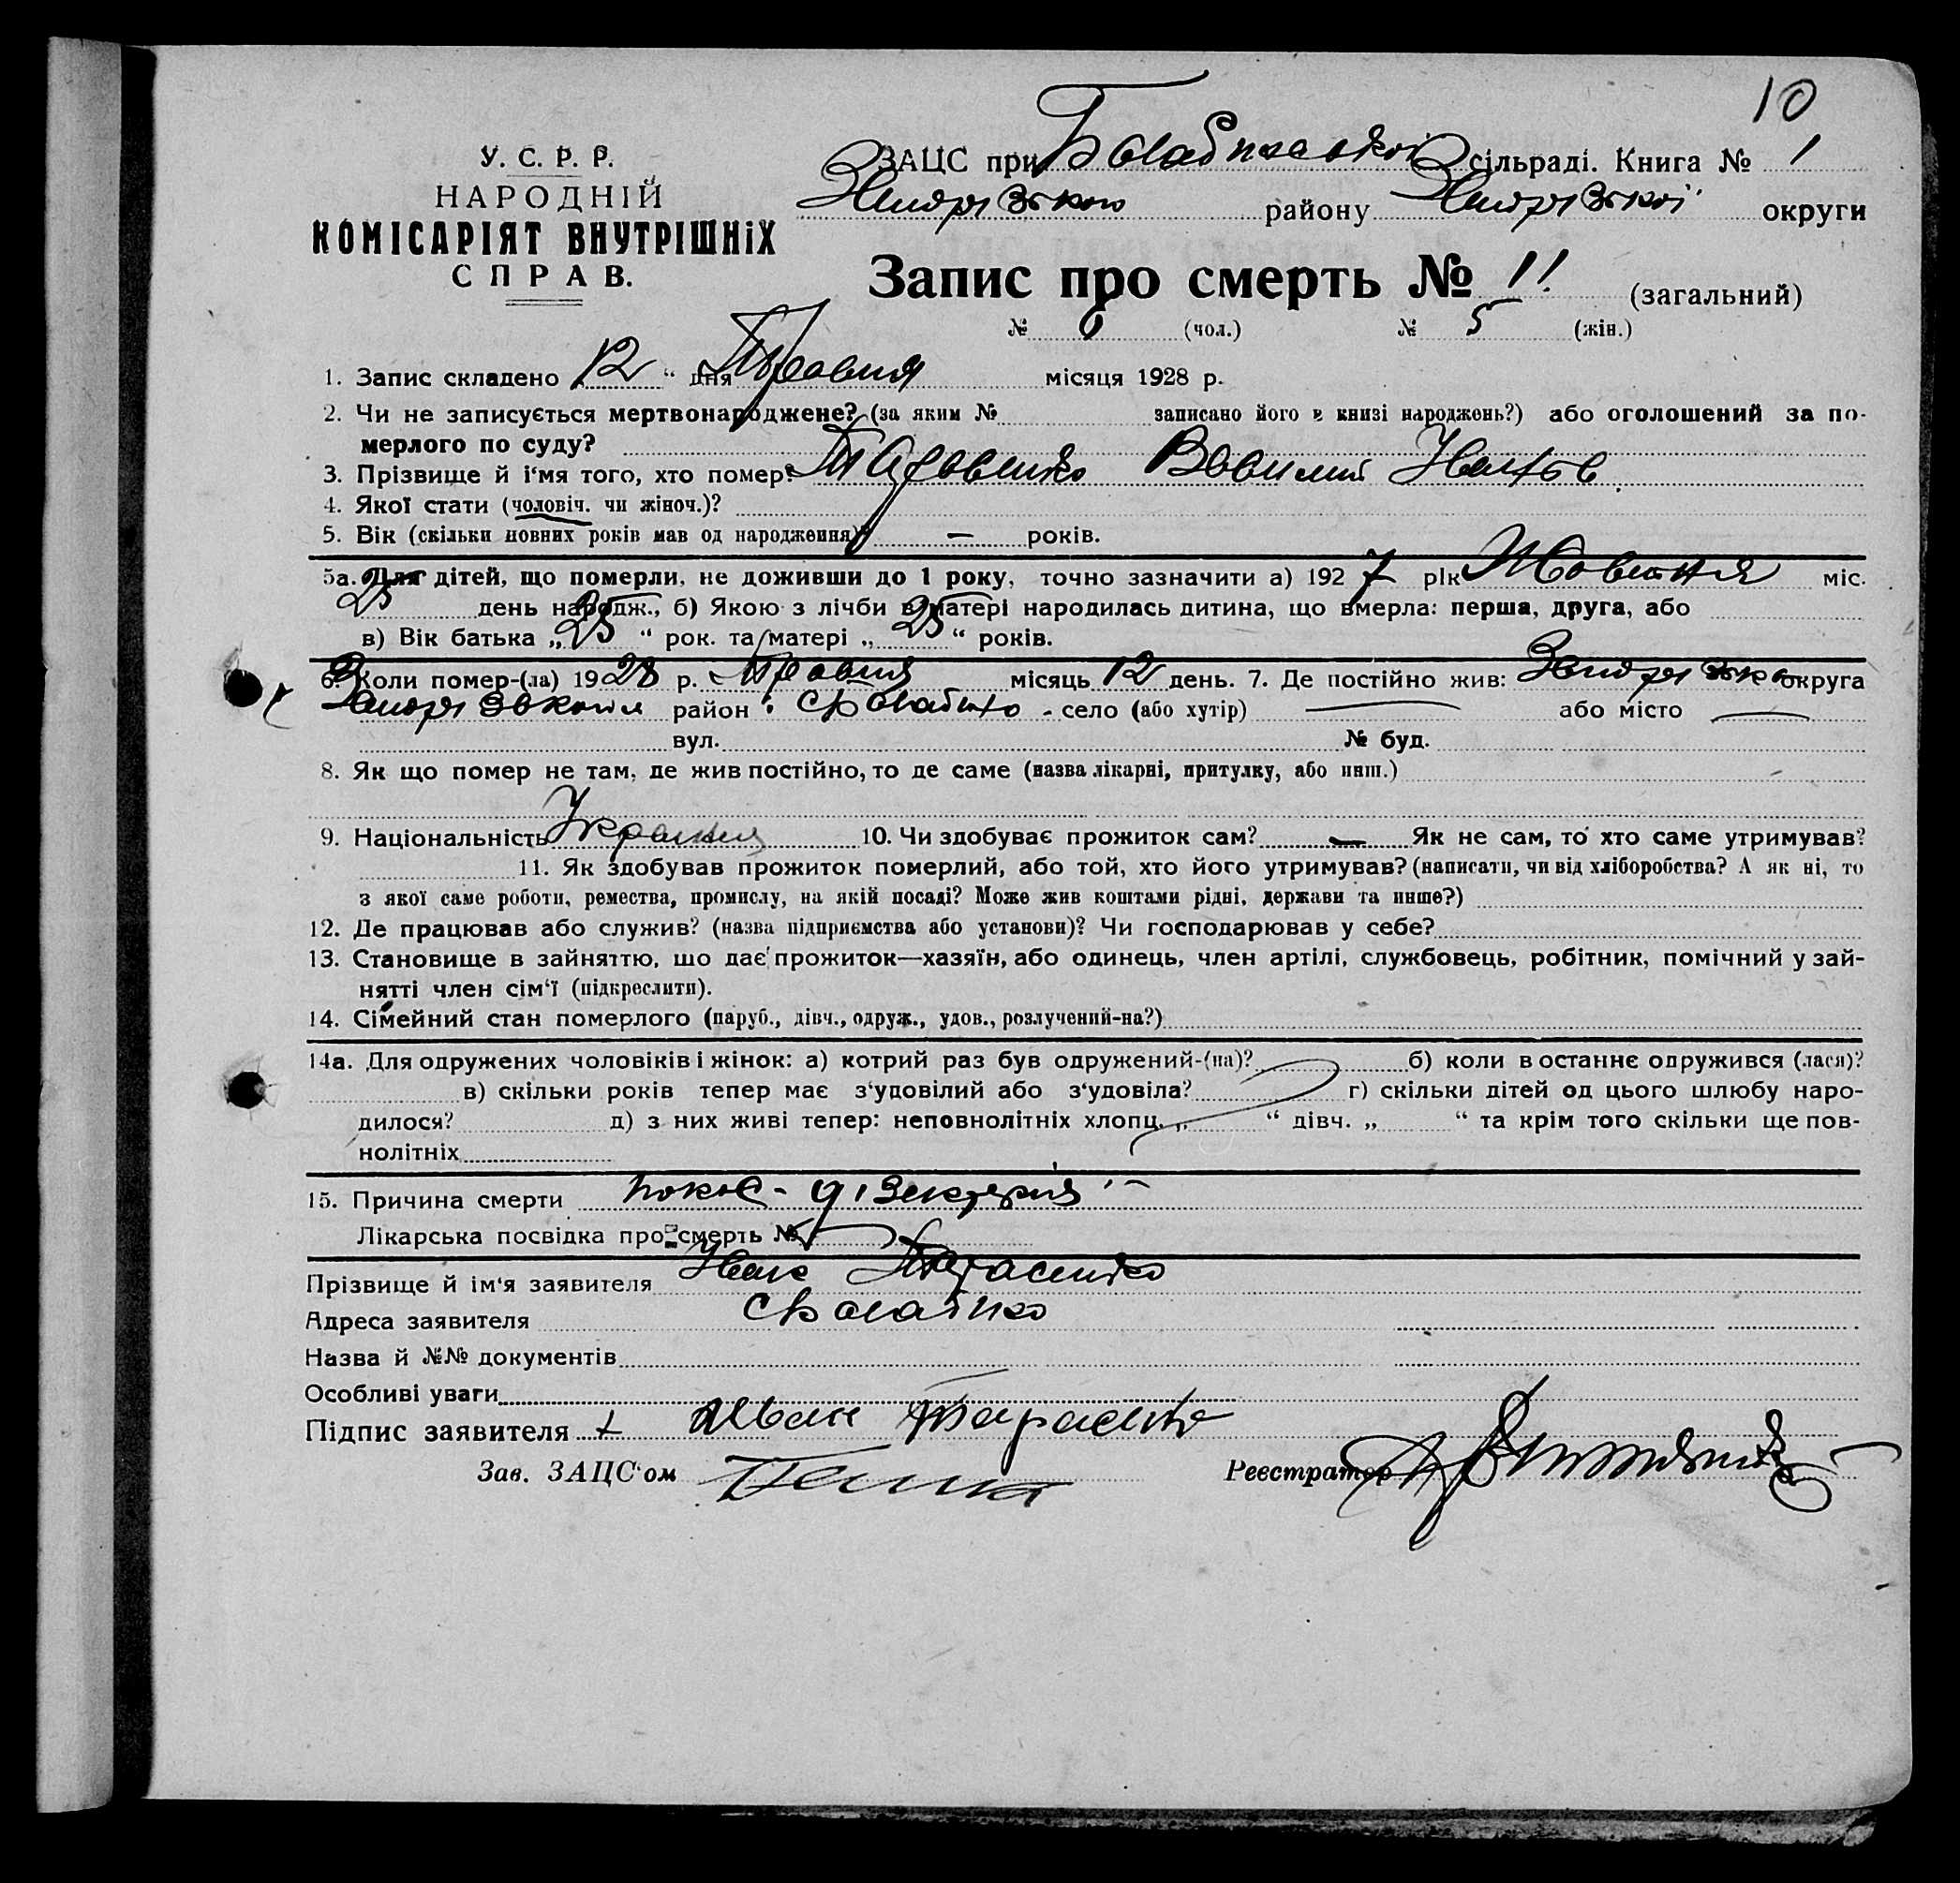 10
У. С. Р. Р.
НАРОДНІЙ
КОМІСАРІЯТ ВНУТРІШНіХ
СПРАВ.
ЗАЦС при Балабинській сільраді. Книга № 1
району округи
Запис про смерть № 11 (загальний)
№ 6 (чол.) № 5 (жін.)
1. Запис складено „ 12 “ дня Травня місяця 1928 р.
2. Чи не записується мертвонароджене? (за яким № записано його в книзі народжень?) або оголошений за по-
мерлого по суду?
3. Прізвище й і‘мя того, хто помер?
4. Якої стати (чоловіч. чи жіноч.)?
5. Вік (скільки повних років мав од народження)? — років.
5а. Для дітей, що померли, не доживши до 1 року, точно зазначити а) 1927 рік Жовтня міс.
25 день народж., б) Якою з лічби в матері народилась дитина, що вмерла: перша, друга, або
в) Вік батька „ 25 “ рок. та матері „ 25 “ років.
6. Коли помер-(ла) 1928 р. Травня місяць 12 день. 7. Де постійно жив: округа
район село (або хутір) — або місто —
вул. № буд.
8. Як що помер не там, де жив постійно, то де саме (назва лікарні, притулку, або инш.)
9. Національність 10. Чи здобуває прожиток сам? — Як не сам, то хто саме утримував?
11. Як здобував прожиток померлий, або той, хто його утримував? (написати, чи від хліборобства? А як ні, то
з якої саме роботи, ремества, промислу, на якій посаді? Може жив коштами рідні, держави та инше?)
12. Де працював або служив? (назва підприємства або установи)? Чи господарював у себе?
13. Становище в зайняттю, шо дає прожиток—хазяїн, або одинець, член артілі, службовець, робітник, помічний у зай-
нятті член сім‘ї (підкреслити).
14. Сімейний стан померлого (паруб., дівч., одруж., удов., розлучений-на?)
14а. Для одружених чоловіків і жінок: а) котрий раз був одружений-(на)? б) коли в останнє одружився (лася)?
в) скільки років тепер має з‘удовілий або з‘удовіла? г) скільки дітей од цього шлюбу наро-
дилося? д) з них живі тепер: неповнолітніх хлопц. „ “ дівч. „ “ та крім того скільки ще пов-
нолітніх
15. Причина смерти
Лікарська посвідка про смерть №
Прізвище й ім‘я заявителя Тарасенко
Адреса заявителя
Назва й №№ документів
Особливі уваги
Підпис заявителя Иван Тарасенко
Зав. ЗАЦС‘ом
Реєстратор